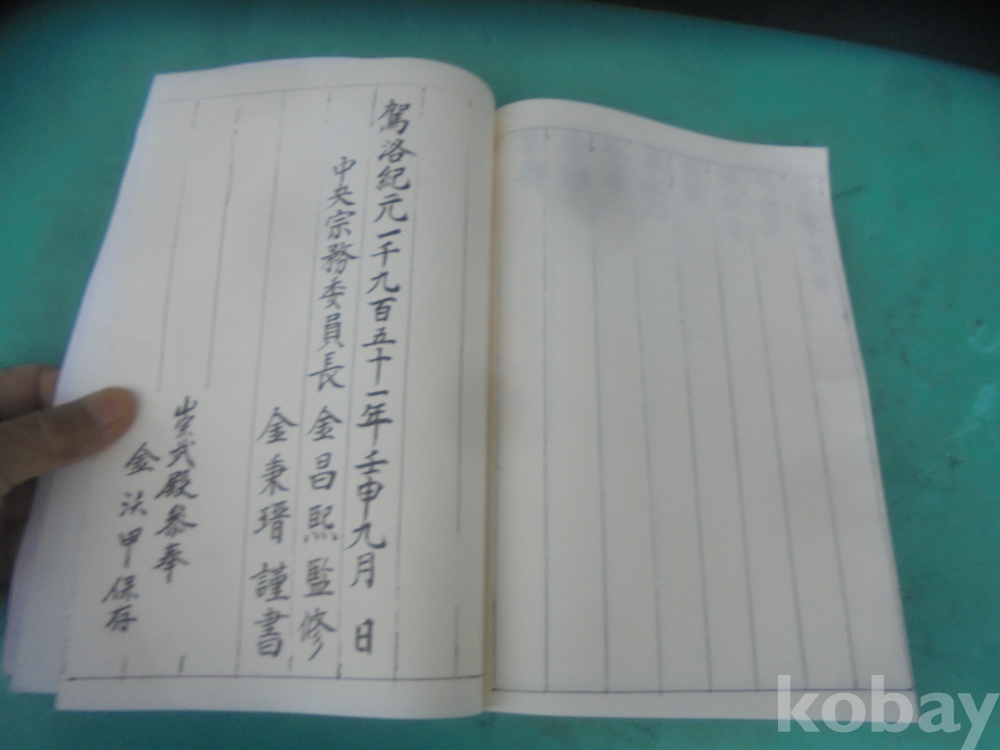 駕洛紀元一千九百五十一年壬申九月 日
中央宗務委員長 金昌熙監修
金秉瑨謹書
崇武殿參奉
金法甲保存
kobay